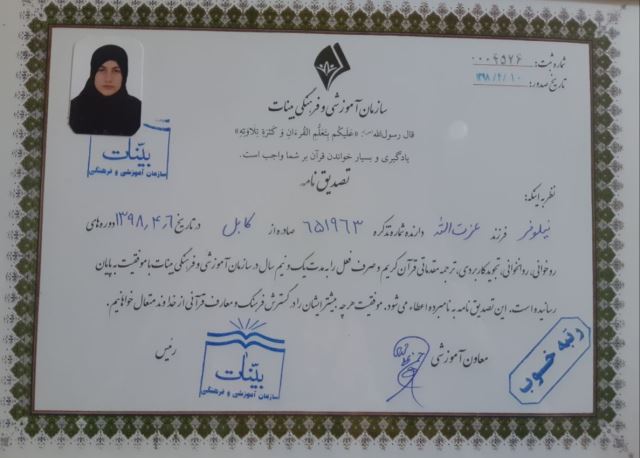 شماره ثبت: ۰۰۰۶۵۲۶
تاریخ صدور: ۱۳۹۸/۴/۱۰
سازمان آموزشی و فرهنگی بینات
قال رسول الله(ص): «عَلَیکُم بِتَعَلُّمِ القُرءَانِ وَ کَثرَةِ تِلاوَتِهِ»
یادگیری و بسیار خواندن قرآن بر شما واجب است.
تصدیق نامه
بیّنات
سازمان آموزشی و فرهنگی
نظر به اینکه:
نیلوفر فرزند عزت الله دارنده شماره تذکره ۶۵۱۹۶۳ صادره از کابل در تاریخ ۱۳۹۸,۴,۶ دوره های
روخوانی، روانخوانی، تجوید کاربردی، ترجمه مقدماتی قرآن کریم و صرف فعل را به مدت یک و نیم سال در سازمان آموزشی و فرهنگی بینات با موفقیت به پایان
رسانیده است، این تصدیق نامه به نامبرده اعطاء می شود. موفقیت هر چه بیشتر ایشان را در گسترش فرهنگ و معارف قرآنی از خداوند متعال خواهانیم.
معاون آموزشی
رئیس
رتبه خوب
بیّنات
سازمان آموزشی و فرهنگی